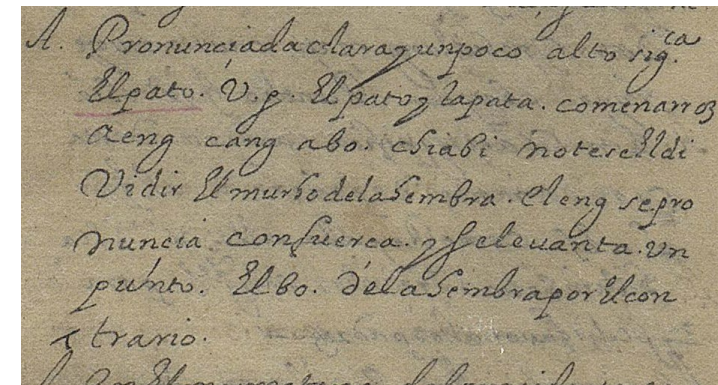 A. Pronunciada clara y un poco alto sig.ca
El pato. V.g. El pato y la pata. comen arroz
Aeng cang abo. chiabi notese El di
Vidir El murho de la hembra. el eng se pro
nuncia con fuerca. y se levanta. un
punto. El bo. de la hembra por El con
trario.